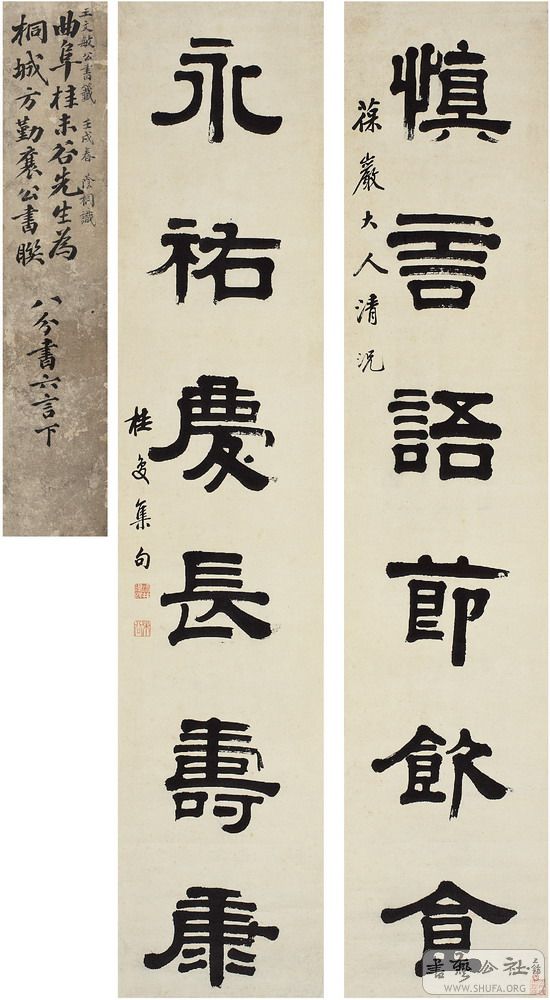 慎言語節飲食
葆巖大人清況
永祐慶長壽康
桂复集句
王文敏公書籤 壬戌春 蔭桐識
曲阜桂未谷先生為
桐城方勤襄公書聯
八分書六言下
書藝公社
WWW.SHUFA.ORG